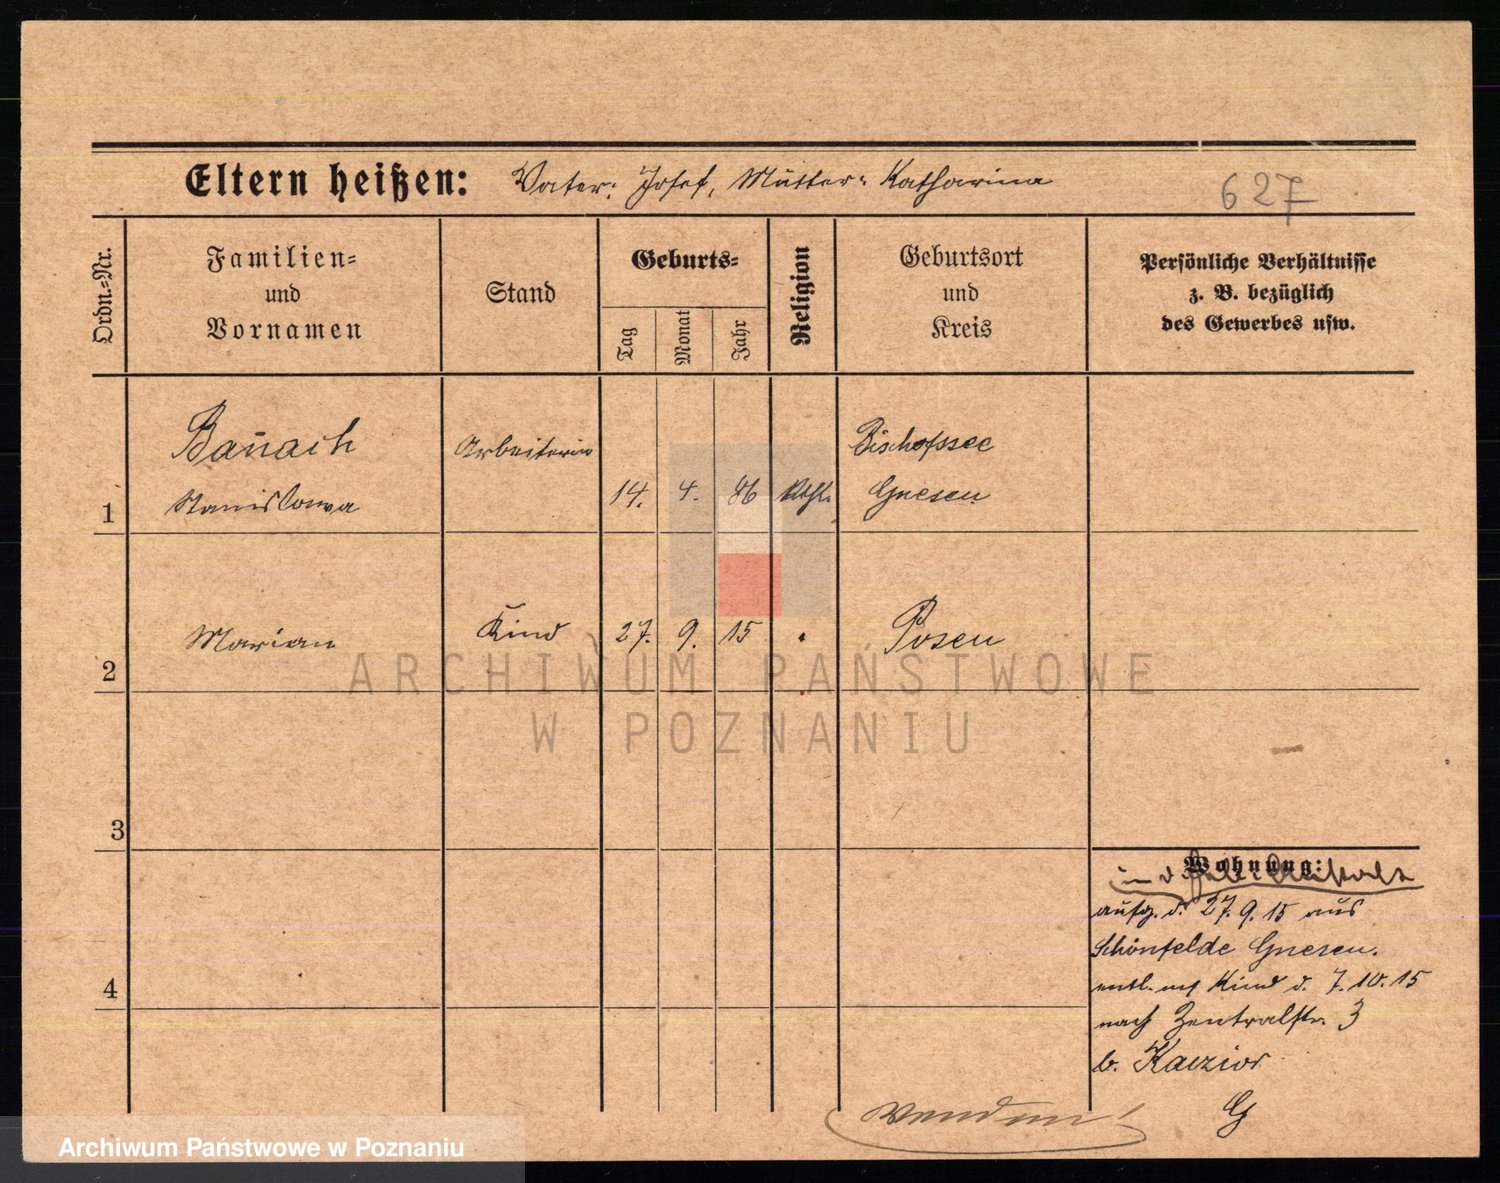 Eltern heißen: Vater: Josef, Mutter: Katharina
627
Ordn.-Nr.
Familien-
und
Vornamen
Stand
Geburts-
Tag
Monat
Jahr
Religion
Geburtsort
und
Kreis
Persönliche Verhältnisse
z. B. bezüglich
des Gewerbes usw.
1
Banach
Stanislawa
Arbeiterin
14. 4. 86 kath.
Bischofssee
Gnesen
2
Marian
Kind
27. 9. 15 "
Posen
ARCHIWUM PAŃSTWOWE
W POZNANIU
3
4
Wohnung:
in d.
aufg. d. 27.9.15 aus
Schönfelde Gnesen.
entl. mit Kind d. 7.10.15
nach Zentralstr. 3
b. Kaczior
G
Wenden!
Archiwum Państwowe w Poznaniu